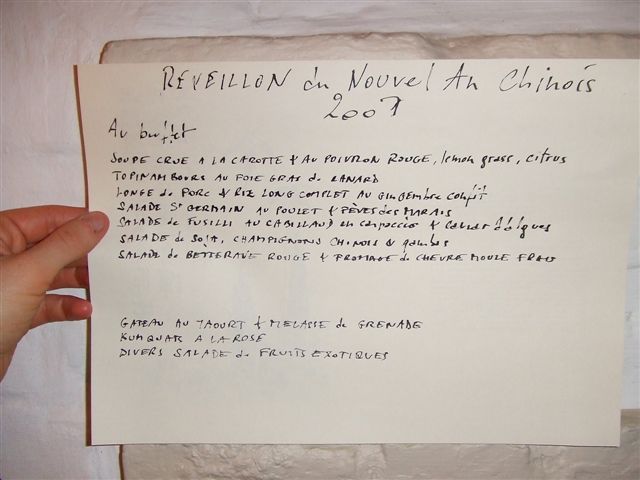 REVEILLON du NOUVEL AN CHINOIS
2007
Au buffet
SOUPE CRUE A LA CAROTTE & AU POIVRON ROUGE, lemon grass, citrus
TOPINAMBOURS AU FOIE GRAS de CANARD
LONGE de PORC & RIZ LONG COMPLET AU GINGEMBRE CONFIT
SALADE St GERMAIN AU POULET & FÈVES des MARAIS
SALADE de FUSILLI AU CABILLAUD en carpaccio & caviar d'algues
SALADE de SOJA, CHAMPIGNONS CHINOIS & gambas
SALADE de BETTERAVE ROUGE & FROMAGE de CHEVRE MOULE FRAIS
GATEAU AU YAOURT & MELASSE de GRENADE
KUMQUATS A LA ROSE
DIVERS SALADE de FRUITS EXOTIQUES